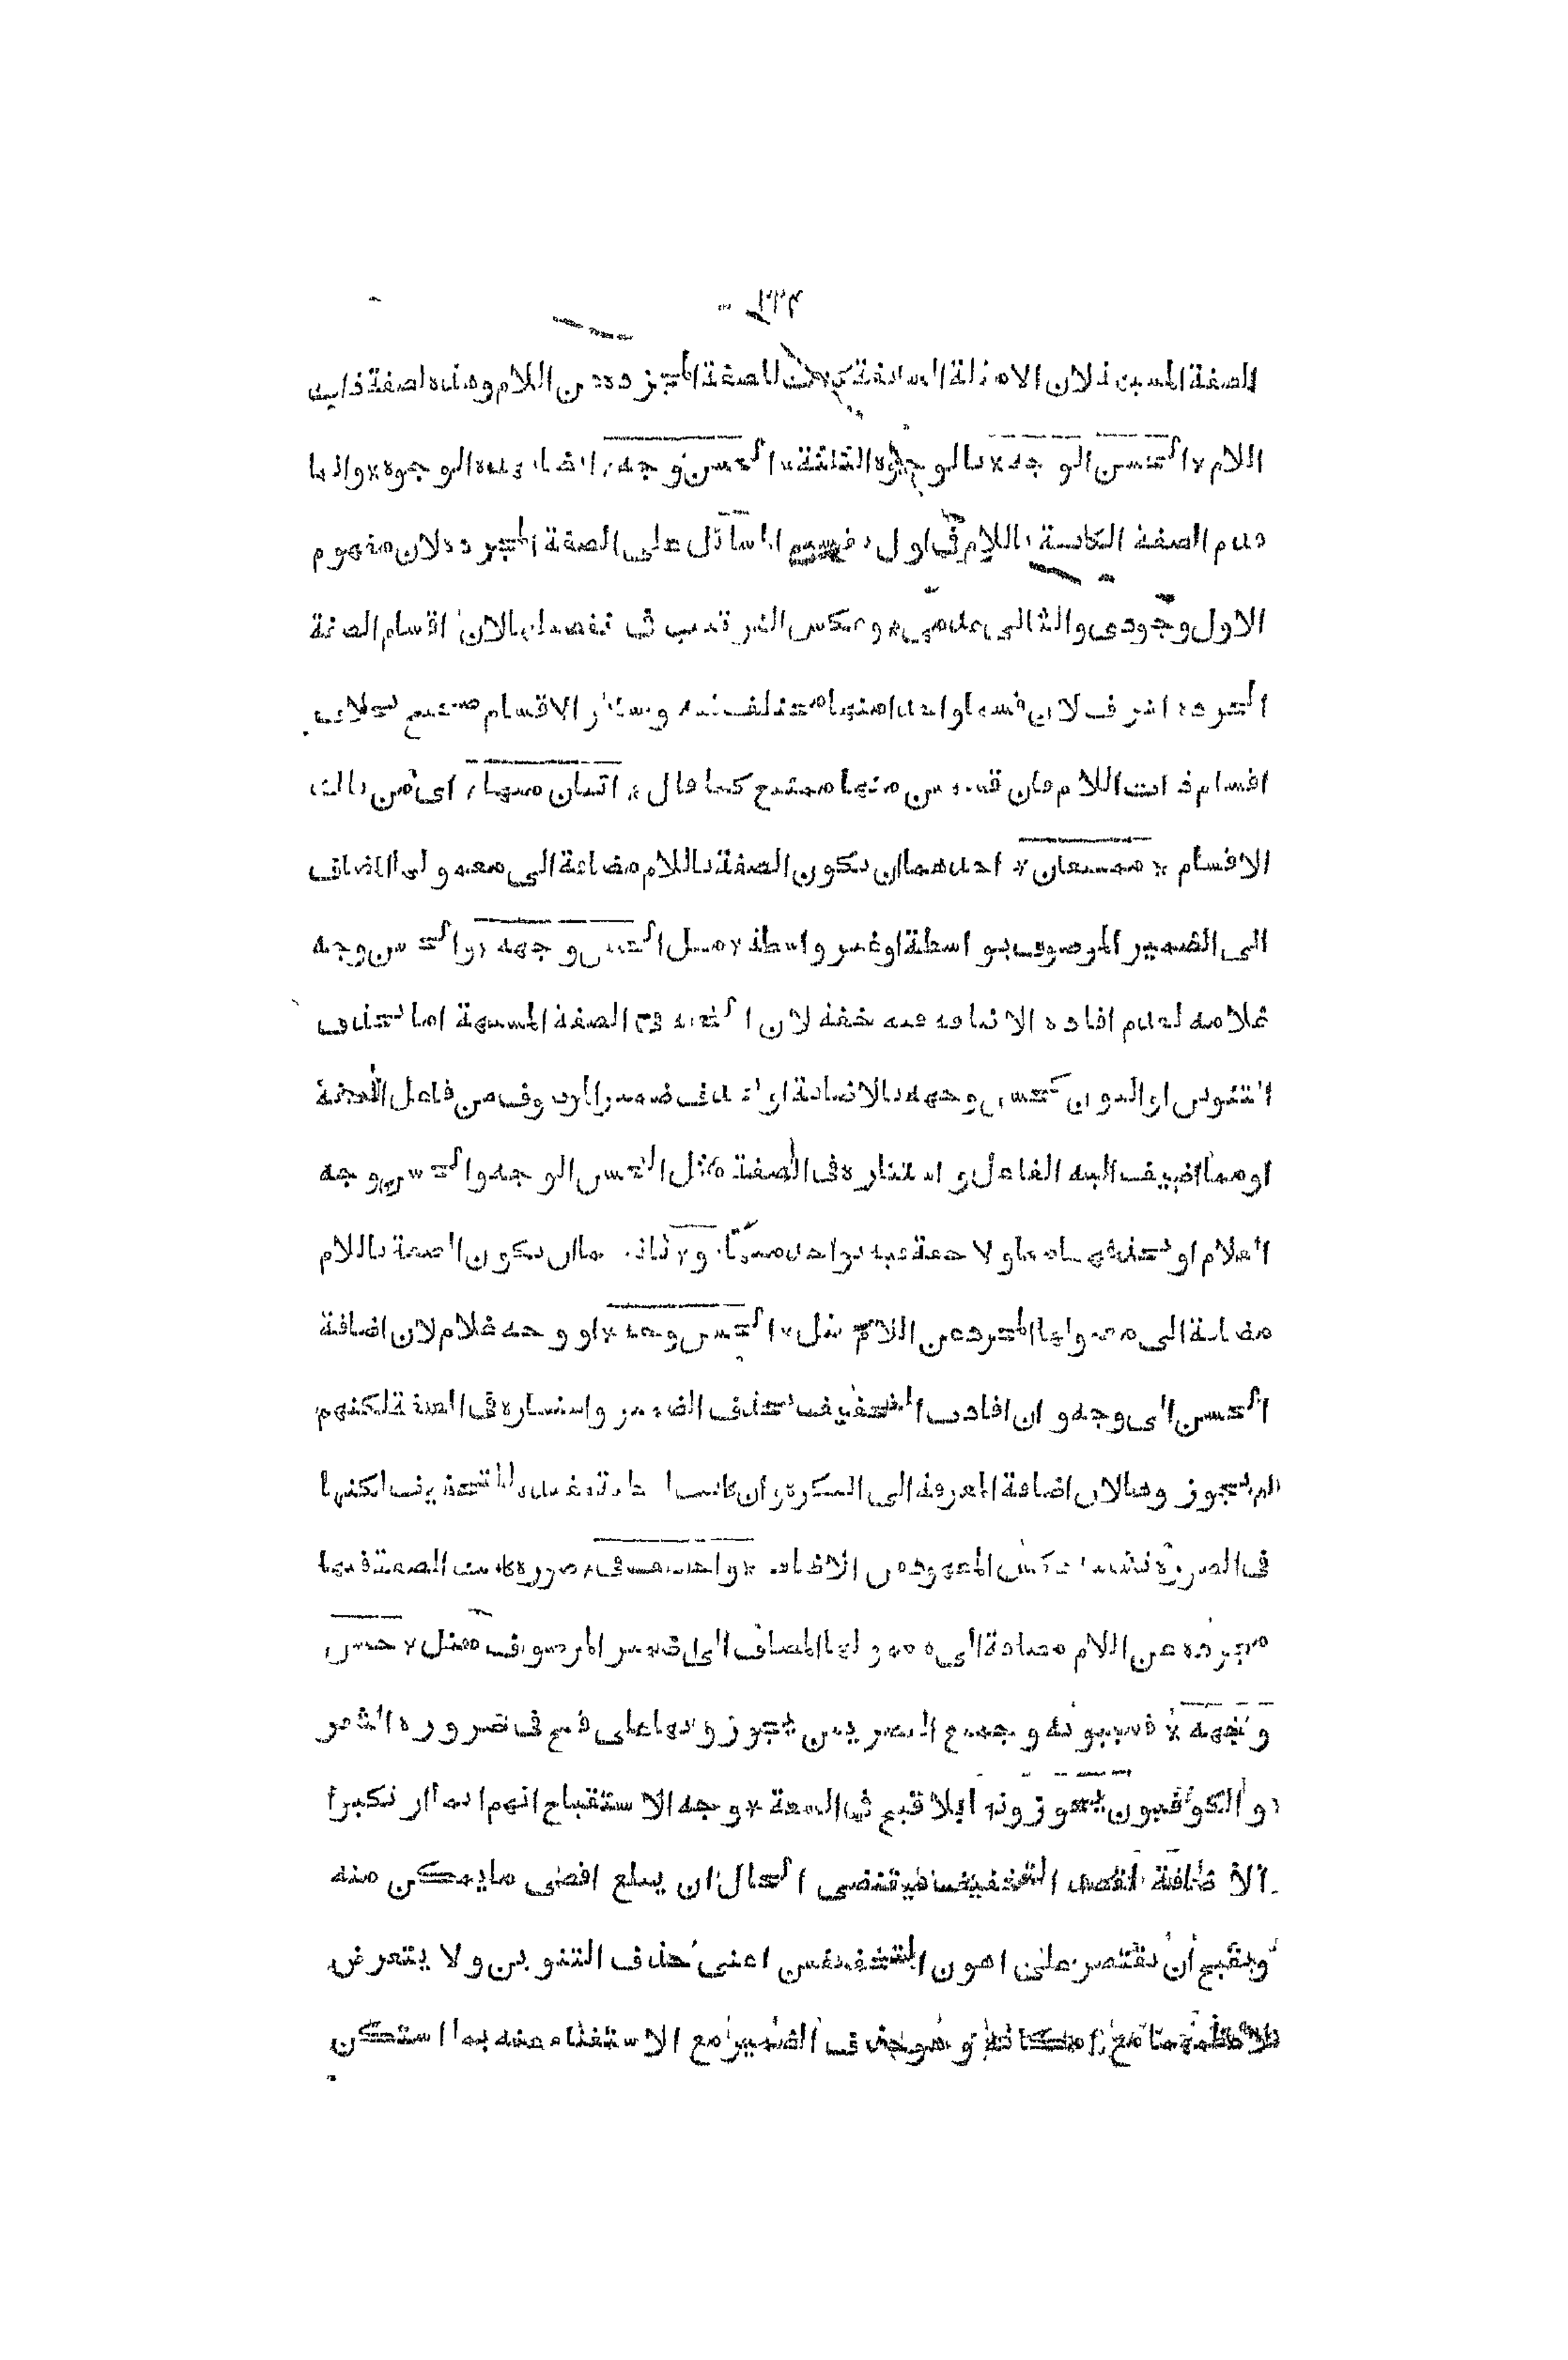 الصفة المشبهة لان الامثلة السابقة كانت للصفة المجردة عن اللام وهذه لصفة ذات
اللام * الحسن الوجه * بالوجوه الثلثة * الحسن وجه * ايضا بهذه الوجوه * وانما
قدم الصفة الكائنة باللام في اول تقسيم المسائل على الصفة المجردة لان مفهوم
الاول وجودي والثاني عدمي * وعكس الترتيب في تفصيلها لان اقسام الصفة
المجردة اشرف لان قسما واحدا منها مختلف فيه وسائر الاقسام صحيح بخلاف
اقسام ذات اللام فان قسمين منها ممتنع كما قال * اثنان منها * اى من تلك
الاقسام * ممتنعان * احدهما ان يكون الصفة باللام مضافة الى معمولها المضاف
الى الضمير الموصوف بواسطة او غير واسطة * مثل الحسن وجهه * والحسن وجه
غلامه لعدم افادة الاضافة فيه خفة لان الخفة في الصفة المشبهة اما بحذف
التنوين او النون كحسن وجهه بالاضافة او بحذف ضمير الموصوف من فاعل الصفة
او مما اضيف اليه الفاعل واستتاره في الصفة مثل الحسن الوجه والحسن وجه
الغلام او بحذفهما معا ولا خفة فيه بواحد منهما * و * ثانيهما ان يكون الصفة باللام
مضافة الى معمولها المجرد عن اللام مثل * الحسن وجه * او وجه غلام لان اضافة
الحسن الى وجه وان افادت التخفيف بحذف الضمير واستتاره في الصفة لكنهم
لم يجوزوها لان اضافة المعرفة الى النكرة وان كانت التخفيف لكنها
في الصورة تشبه عكس المعهود من الاضافة * واختلف في * صورة كانت الصفة فيها
مجردة عن اللام مضافة الى معمولها المضاف الى ضمير الموصوف مثل * حسن
وجهه * فسيبويه وجميع البصريين يجوزونها على قبح في ضرورة الشعر
والكوفيون يجوزونها بلا قبح في السعة * وجه الاستقباح انهم انما ارتكبوا
الاضافة لقصد التخفيف فيقتضى الحال ان يبلغ اقصى ما يمكن منه
ويقبح ان يقتصر على اهون التخفيفين اعنى حذف التنوين ولا يتعرض
لاعظمهما مع امكانه وهو حذف الضمير مع الاستغناء عنه بما استكن